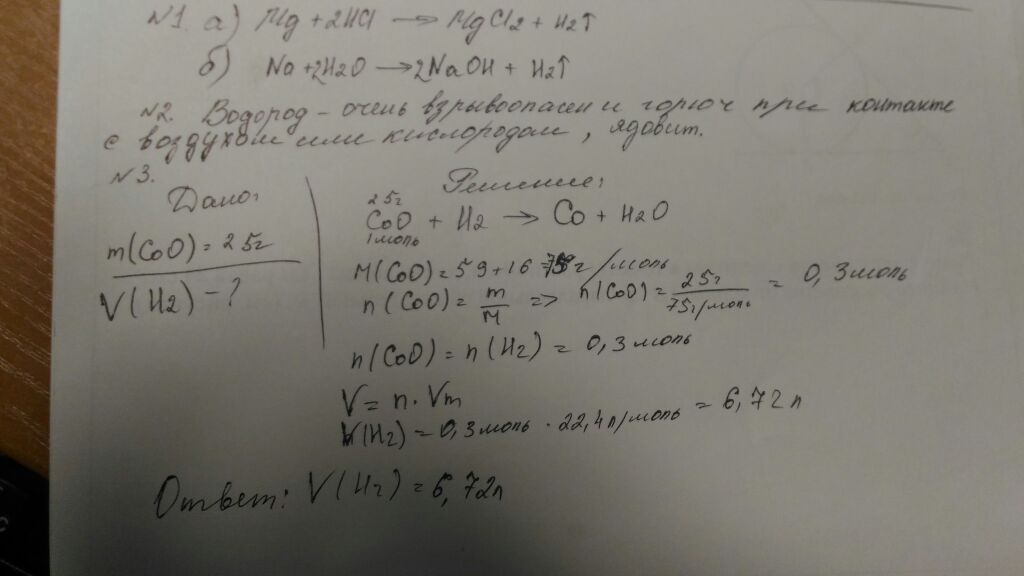 №1. а) Mg + 2HCl → MgCl2 + H2↑
б) Na + 2H2O → 2NaOH + H2↑
№2. Водород - очень взрывоопасен и горюч при контакте
с воздухом или кислородом, ядовит.
№3.
Дано:
m(CoO) = 25г
V(H2) - ?
Решение:
25г
CoO + H2 → Co + H2O
1моль
M(CoO) = 59+16 = 75г/моль
n(CoO) = m/M => n(CoO) = 25г/75г/моль = 0,3моль
n(CoO) = n(H2) = 0,3 моль
V = n · Vm
V(H2) = 0,3моль · 22,4л/моль = 6,72л
Ответ: V(H2) = 6,72л